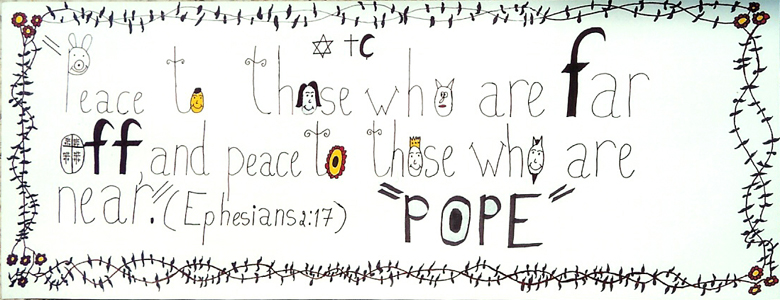 "Peace to those who are far
off, and peace to those who are
near." (Ephesians 2:17) "POPE"